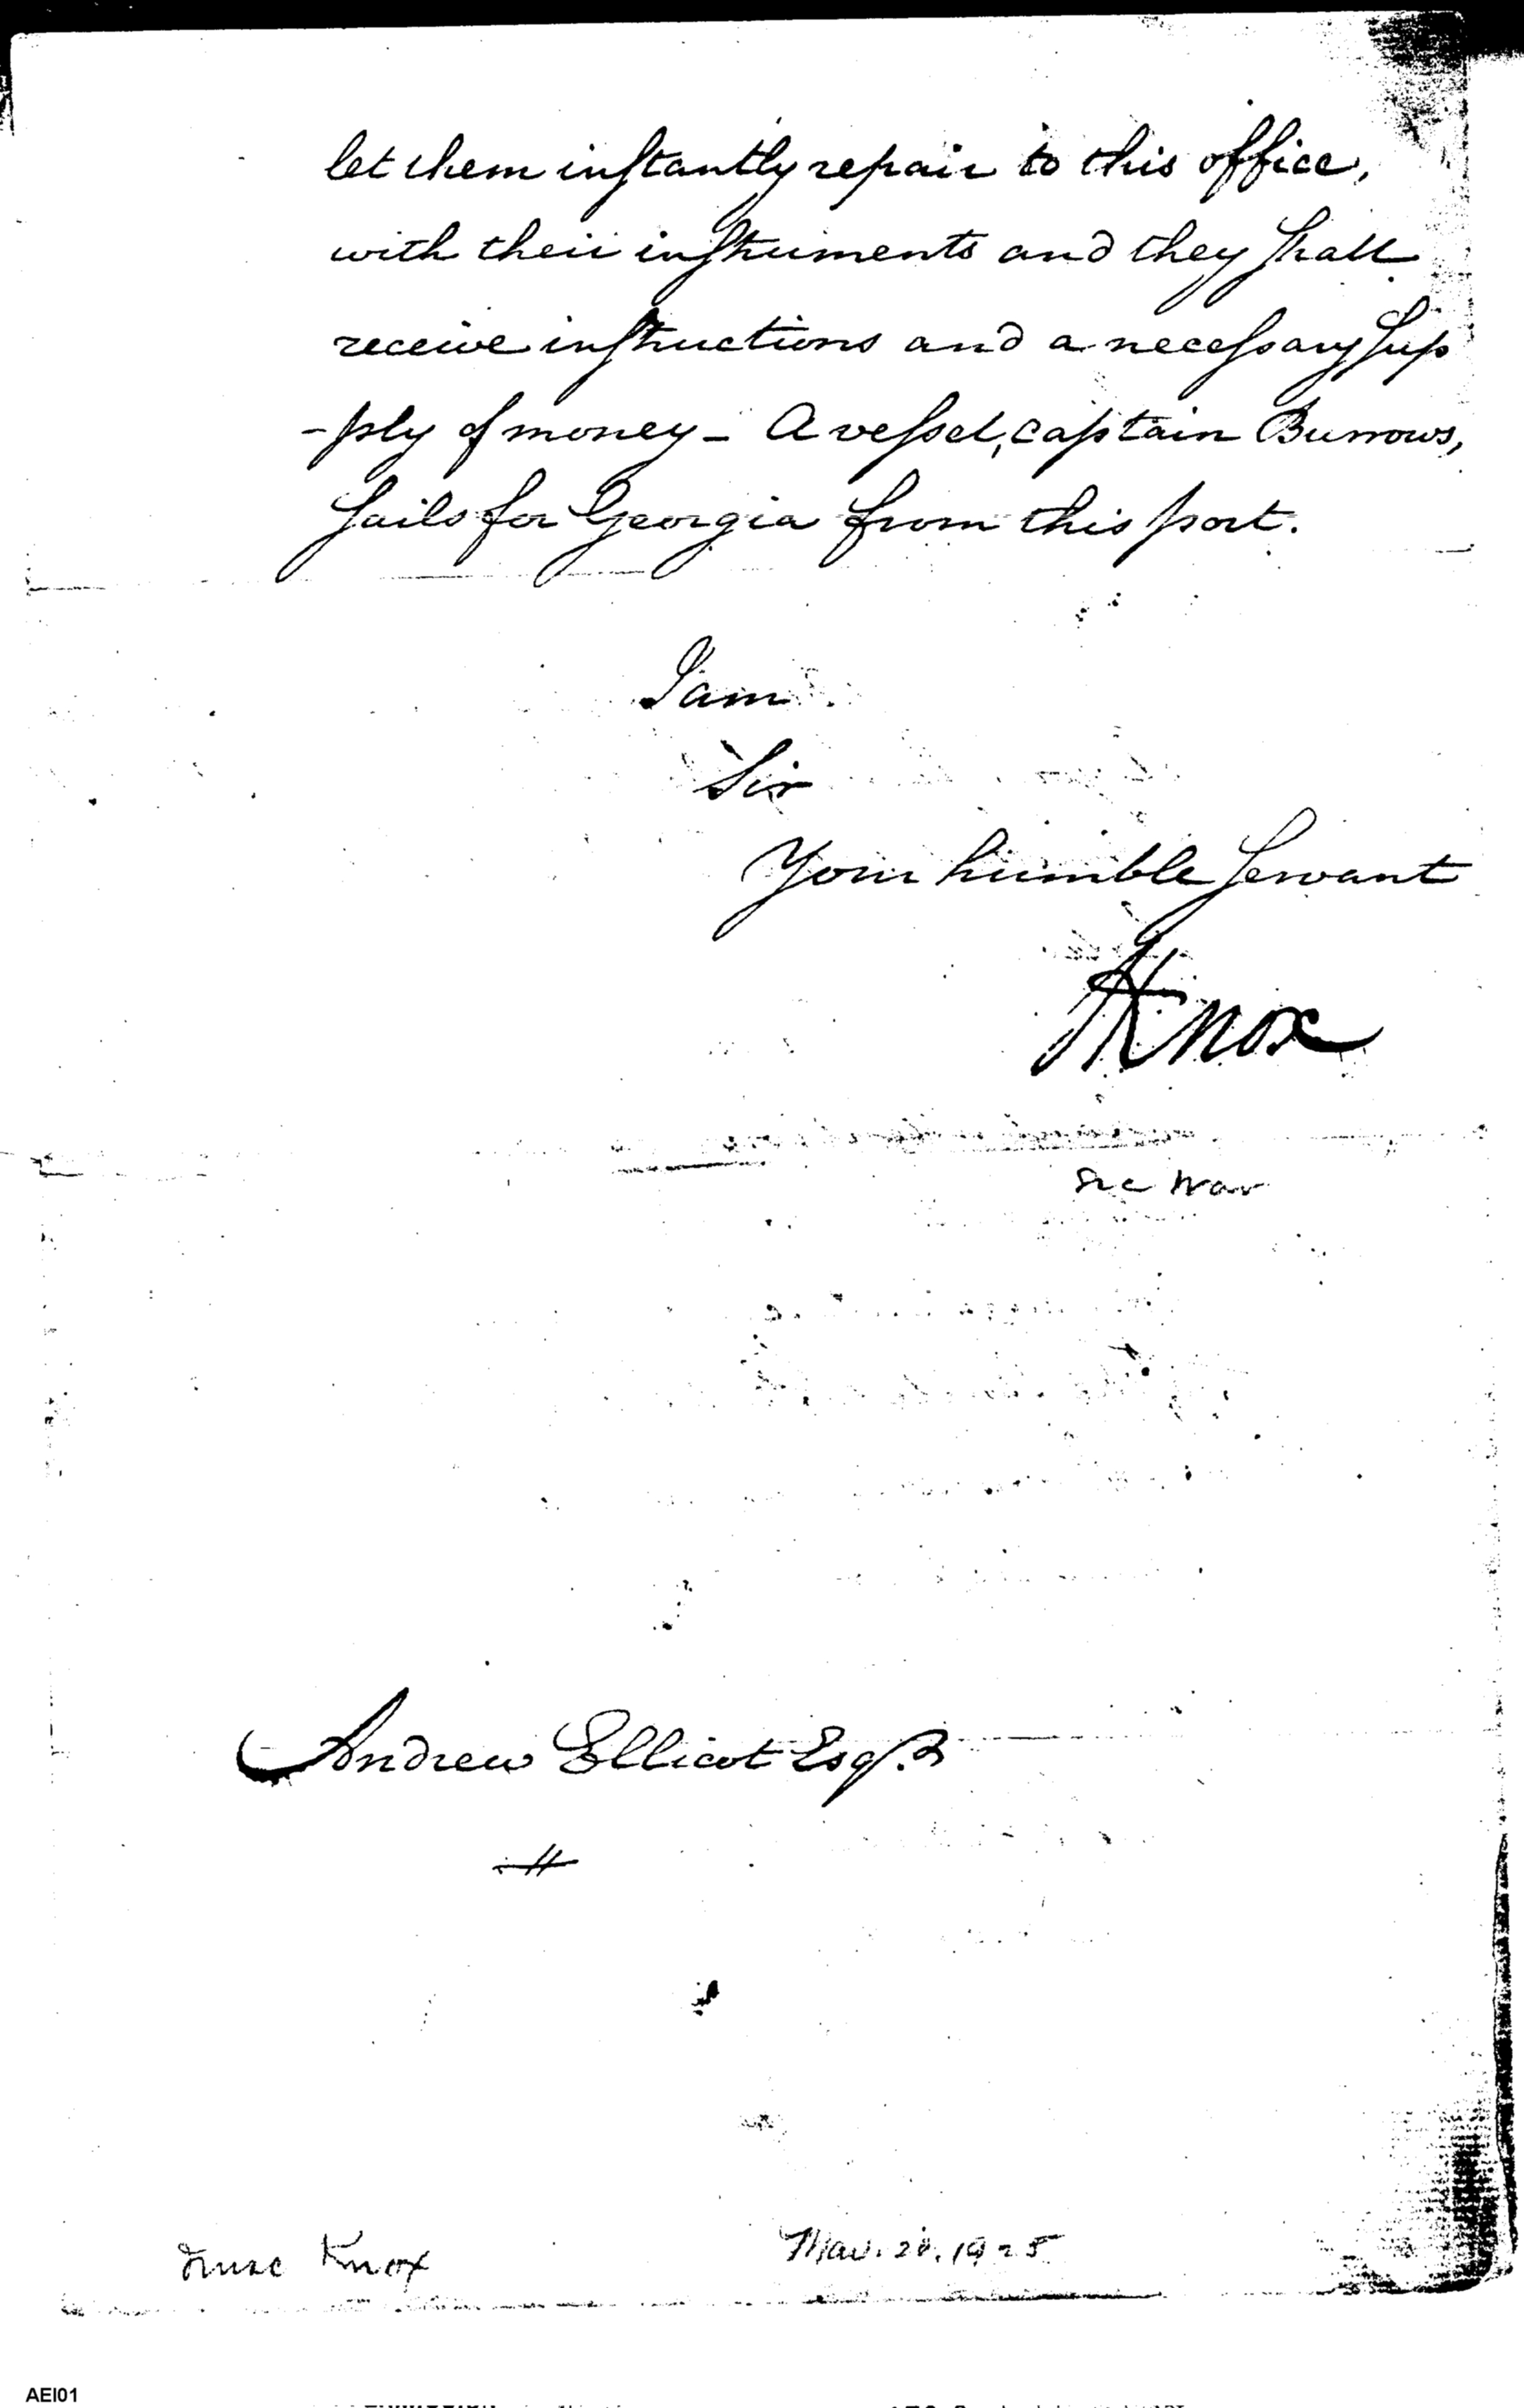 let them instantly repair to this office,
with their instruments and they shall
receive instructions and a necessary sup
-ply of money – A vessel, captain Burrows,
sails for Georgia from this port.
I am
Sir
Your humble servant
HKnox
Sec War
Andrew Ellicot Esqr.
Knox
Mar. 28. 1925
AEI01